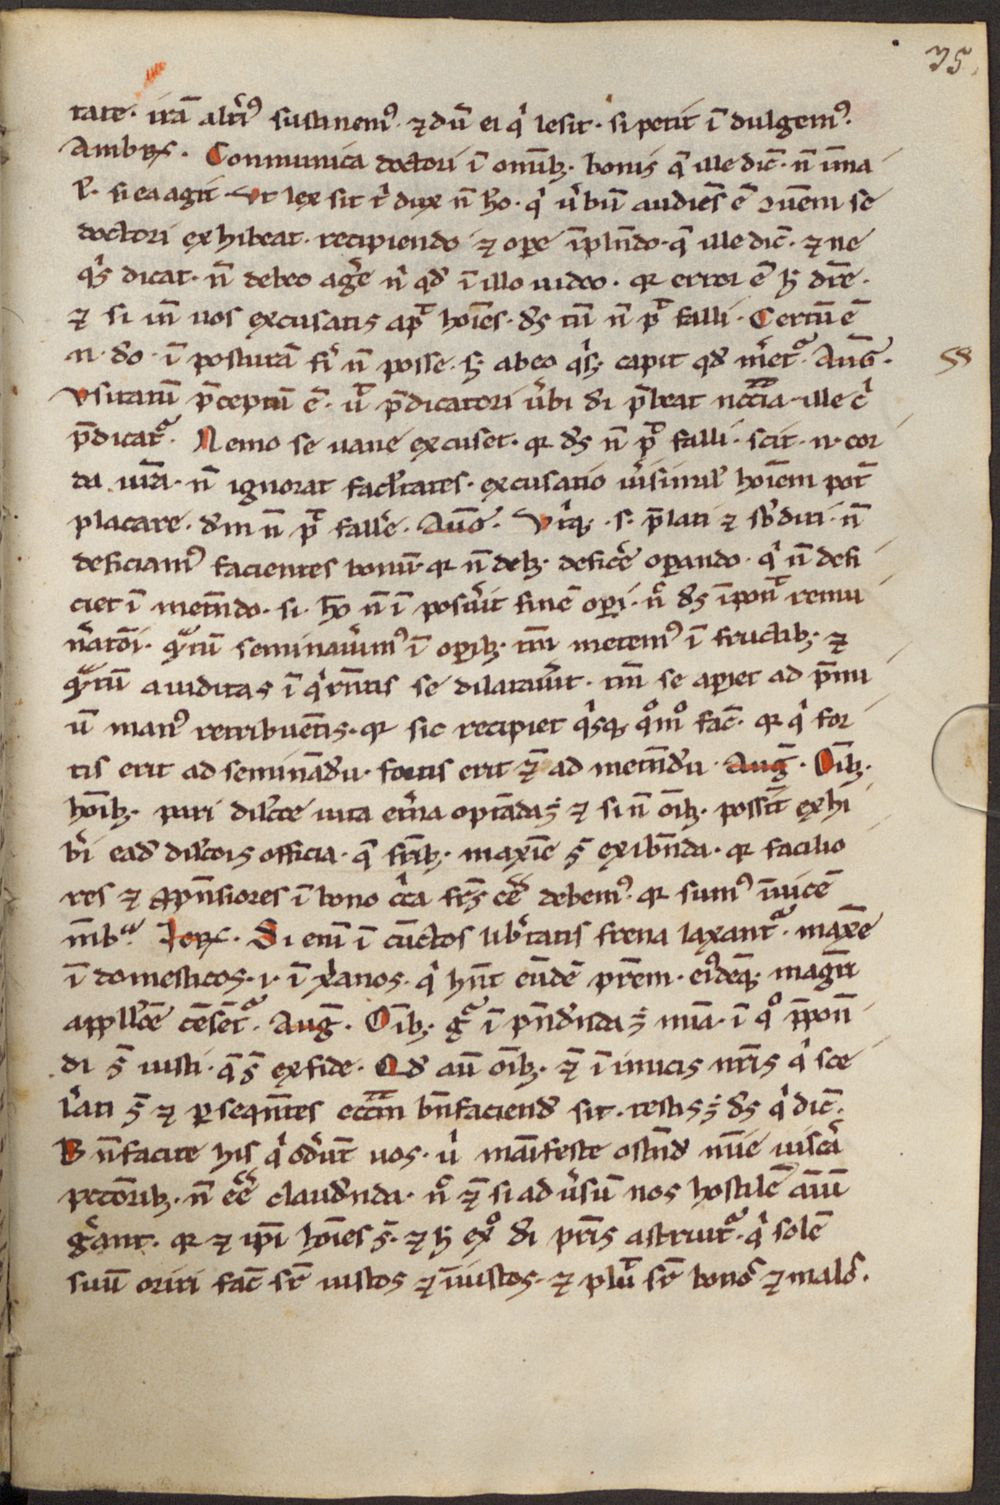 35
tate. irā altī⁹ sustinem⁹. ⁊ dū ei q̓ lesit. si petit ī dulgem⁹.
Ambrꝭ. Conmunica doctori ī omnib; bonis q̄ ille dic̄. n̄ ī ma
l̓. si ea agit. Vt lex sit t̓ dux n̄ ho. q̓ ūbū audiēs ē 
doctori exhibeat. recipiendo ⁊ oꝑe īplēndo. q̄ ille dic̄. ⁊ ne
q̓s dicat. n̄ debeo ag̓e n̓ qd̓ ī illo uideo. qr error ē h̄ dr̄e.
⁊ si in̄ uos excusatis ap̓ hoīes. ds̄ tn̄ n̄ p̄t falli. Certū ē
.n. do. ī posturā fi̓ n̄ posse. s; ab eo q̓s; capit qd̓ m̓et᷑. Auḡ.
Vsitatū p̄ceptū ē. ut p̄dicatori ūbi di p̄beat nccīa. ille c̓
p̄dicat᷑. Nemo se uane excuset. qr ds̄ n̄ p̄t falli. scit .n. cor
da ur̄a. n̄ ignorat facl̓tates. excusatio ūisimil̓ hoīem pot̄
placare. dm̄ n̄ p̄t fall̓e. Auḡ. Vt̓q;. s. p̄lati ⁊ sb̓diti. n̄
deficiam⁹ facientes bonū. qr n̄ deb; defic̓e oꝑando. q̓ n̄ defi
ciet ī metn̄do. si. ho n̄ ī posūit finē oꝑi. n̄ ds̄ īponᷓ remu
n̄atōi. q̄tū seminaūim⁹ ī oꝑib;. tm̄ metem⁹ ī fructib;. ⁊
q̄tū auiditas ī q̓rn̄tis se dilatau̓it. tm̄ se aꝑiet ad p̄mi
ū man⁹ retribuēntis. qr sic recipiet q̓sq; q̊m̊ fac̄. qr q̓ for
tis erit ad seminādū. fortis erit ⁊̄ ad metn̄dū. Auḡ. Oīb;.
hoīb;. pari dilc̄e uita et̓na optāda ē. ⁊ si n̄ oīb;. possīt exhi
b̓i ead̓ dilcōis officia. q̄ frīb;. maxīe s̄t exibn̄da. qr facilio
res ⁊ ꝓpn̄siores ī bono c̓ca frēs cē debem⁹. qr sum⁹ īuicē
mēbᵃ. Ierꝭ. Si enī ī cūctos lib̓tatis frena laxant᷑. maxīe
ī domesticos. i. ī xp̓ianos. q̓ hn̄t eūdē pr̄em. ei⁹deq;. magr̄i
appll̓cē cēset᷑. Auḡ. Oīb;. g̓ ī pn̄d̓nda ē mīa. ī q̊ p̄pon̄
di s̄t iusti. q̄ s̄t ex fide. Qd̓ aū oīb;. ⁊̄ inimicis nr̄is q̓ sce
l̓ati s̄t ⁊ ꝑseqn̄tes eccīam bn̄faciend̓ sit. testis ē ds̄ q̓ dic̄.
Bn̄facite his q̓ od̓ūt uos. ū manifeste ostn̄d̓ nūc uisc̓a
pctorib;. n̄ eē claud̓nda. n̊ ⁊̄ si ad ūsū nos hostilē aīū
g̓ant. qr ⁊ ip̄i hoīes s̄t. ⁊ h̄ ex̊ di pr̄is astruit᷑. q̓ solē
suū oriri fac̄ sr̄ iustos ⁊ īiustos. ⁊ pluᷓ sr̄ bonos ⁊ malos.